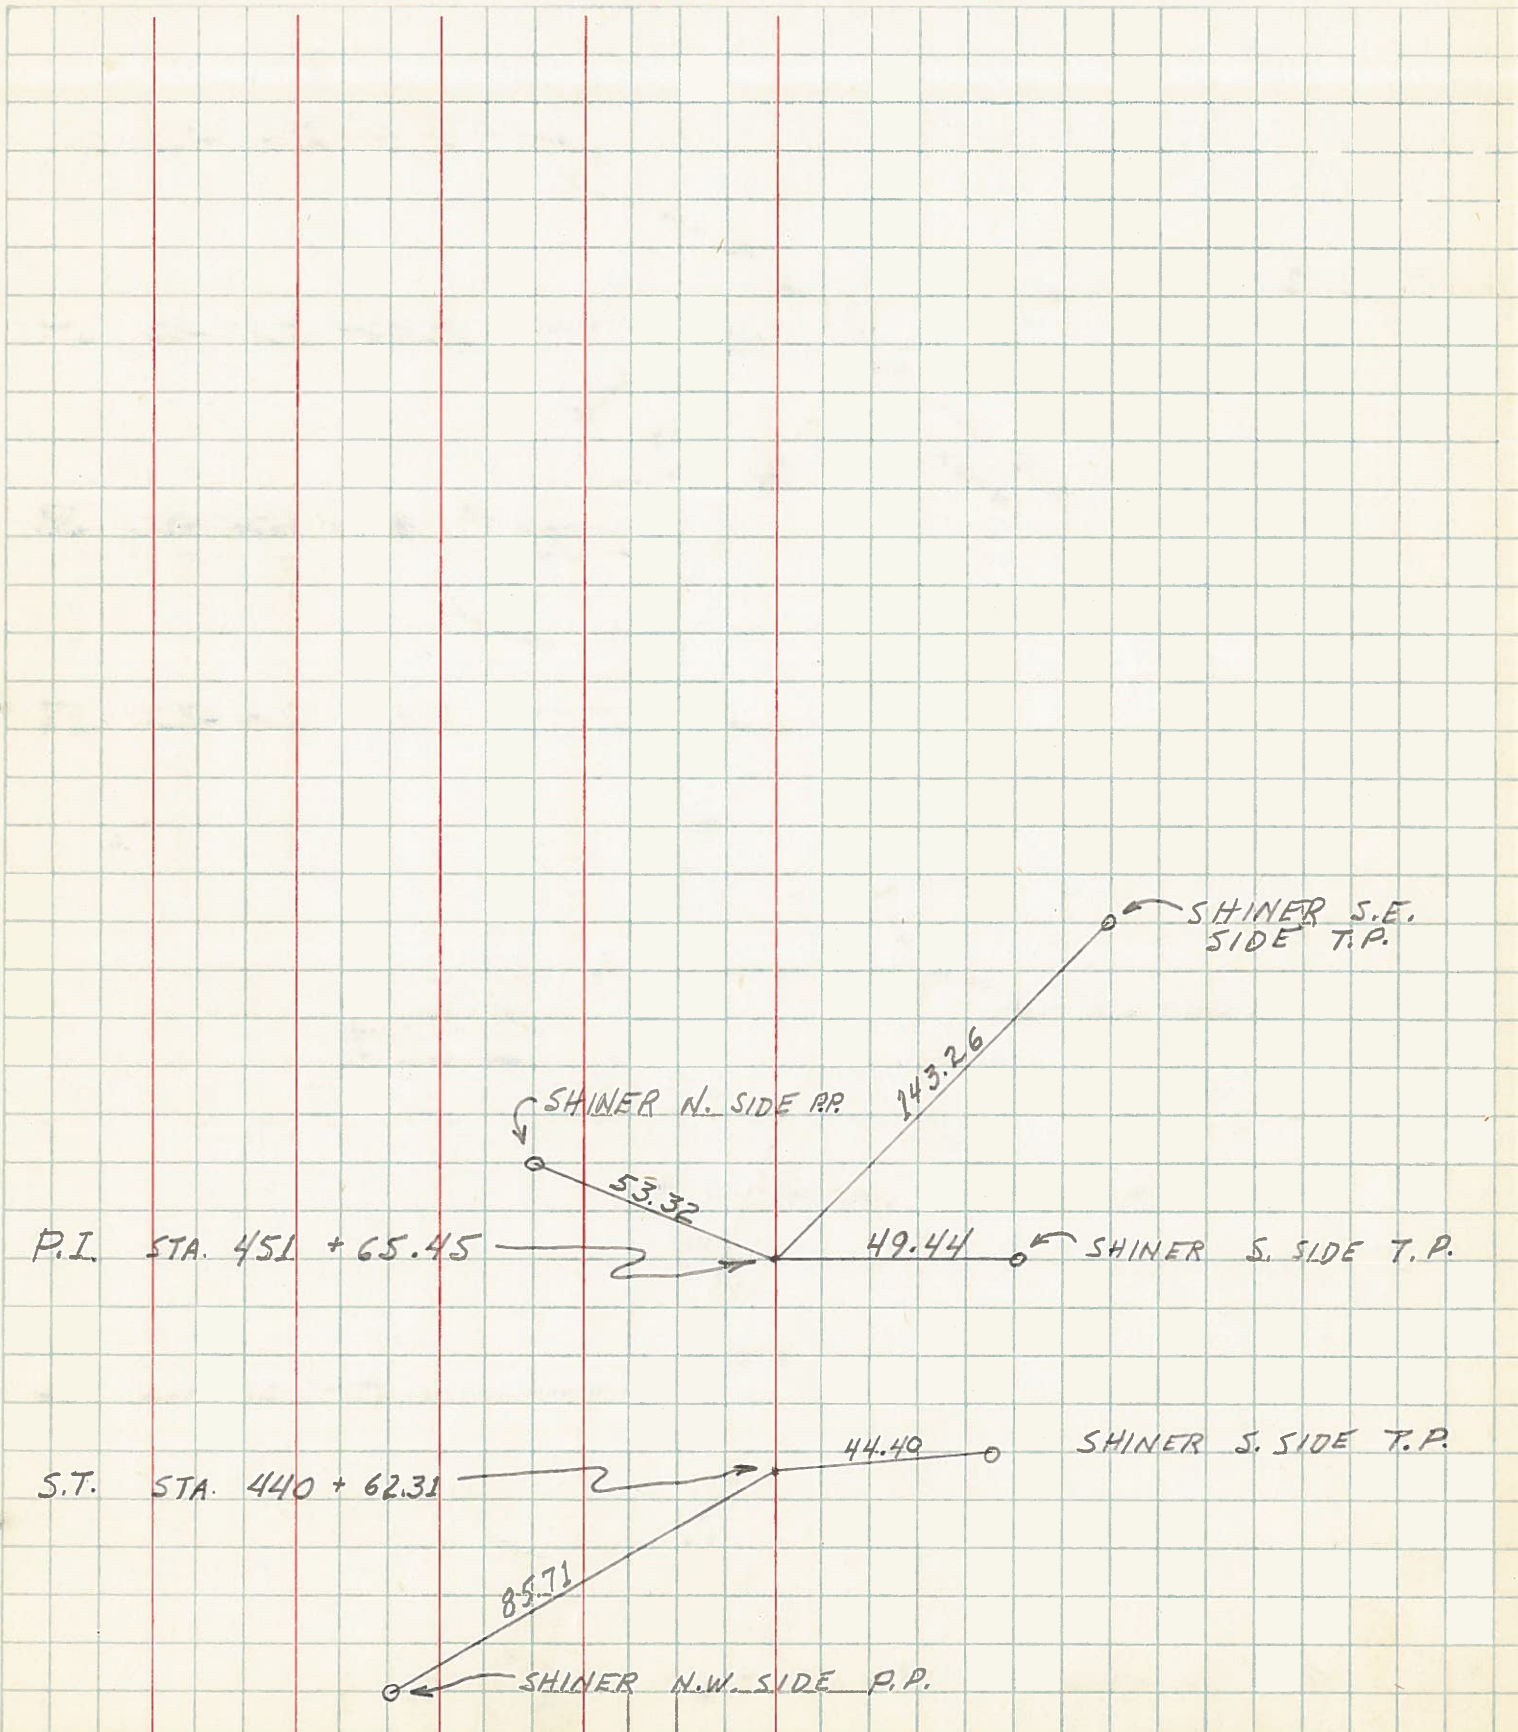 SHINER S.E.
SIDE T.P.
143.26
SHINER N. SIDE P.P.
53.32
P.I. STA. 451 + 65.45
49.44
SHINER S. SIDE T.P.
44.49
SHINER S. SIDE T.P.
S.T. STA. 440 + 62.31
85.71
SHINER N.W. SIDE P.P.